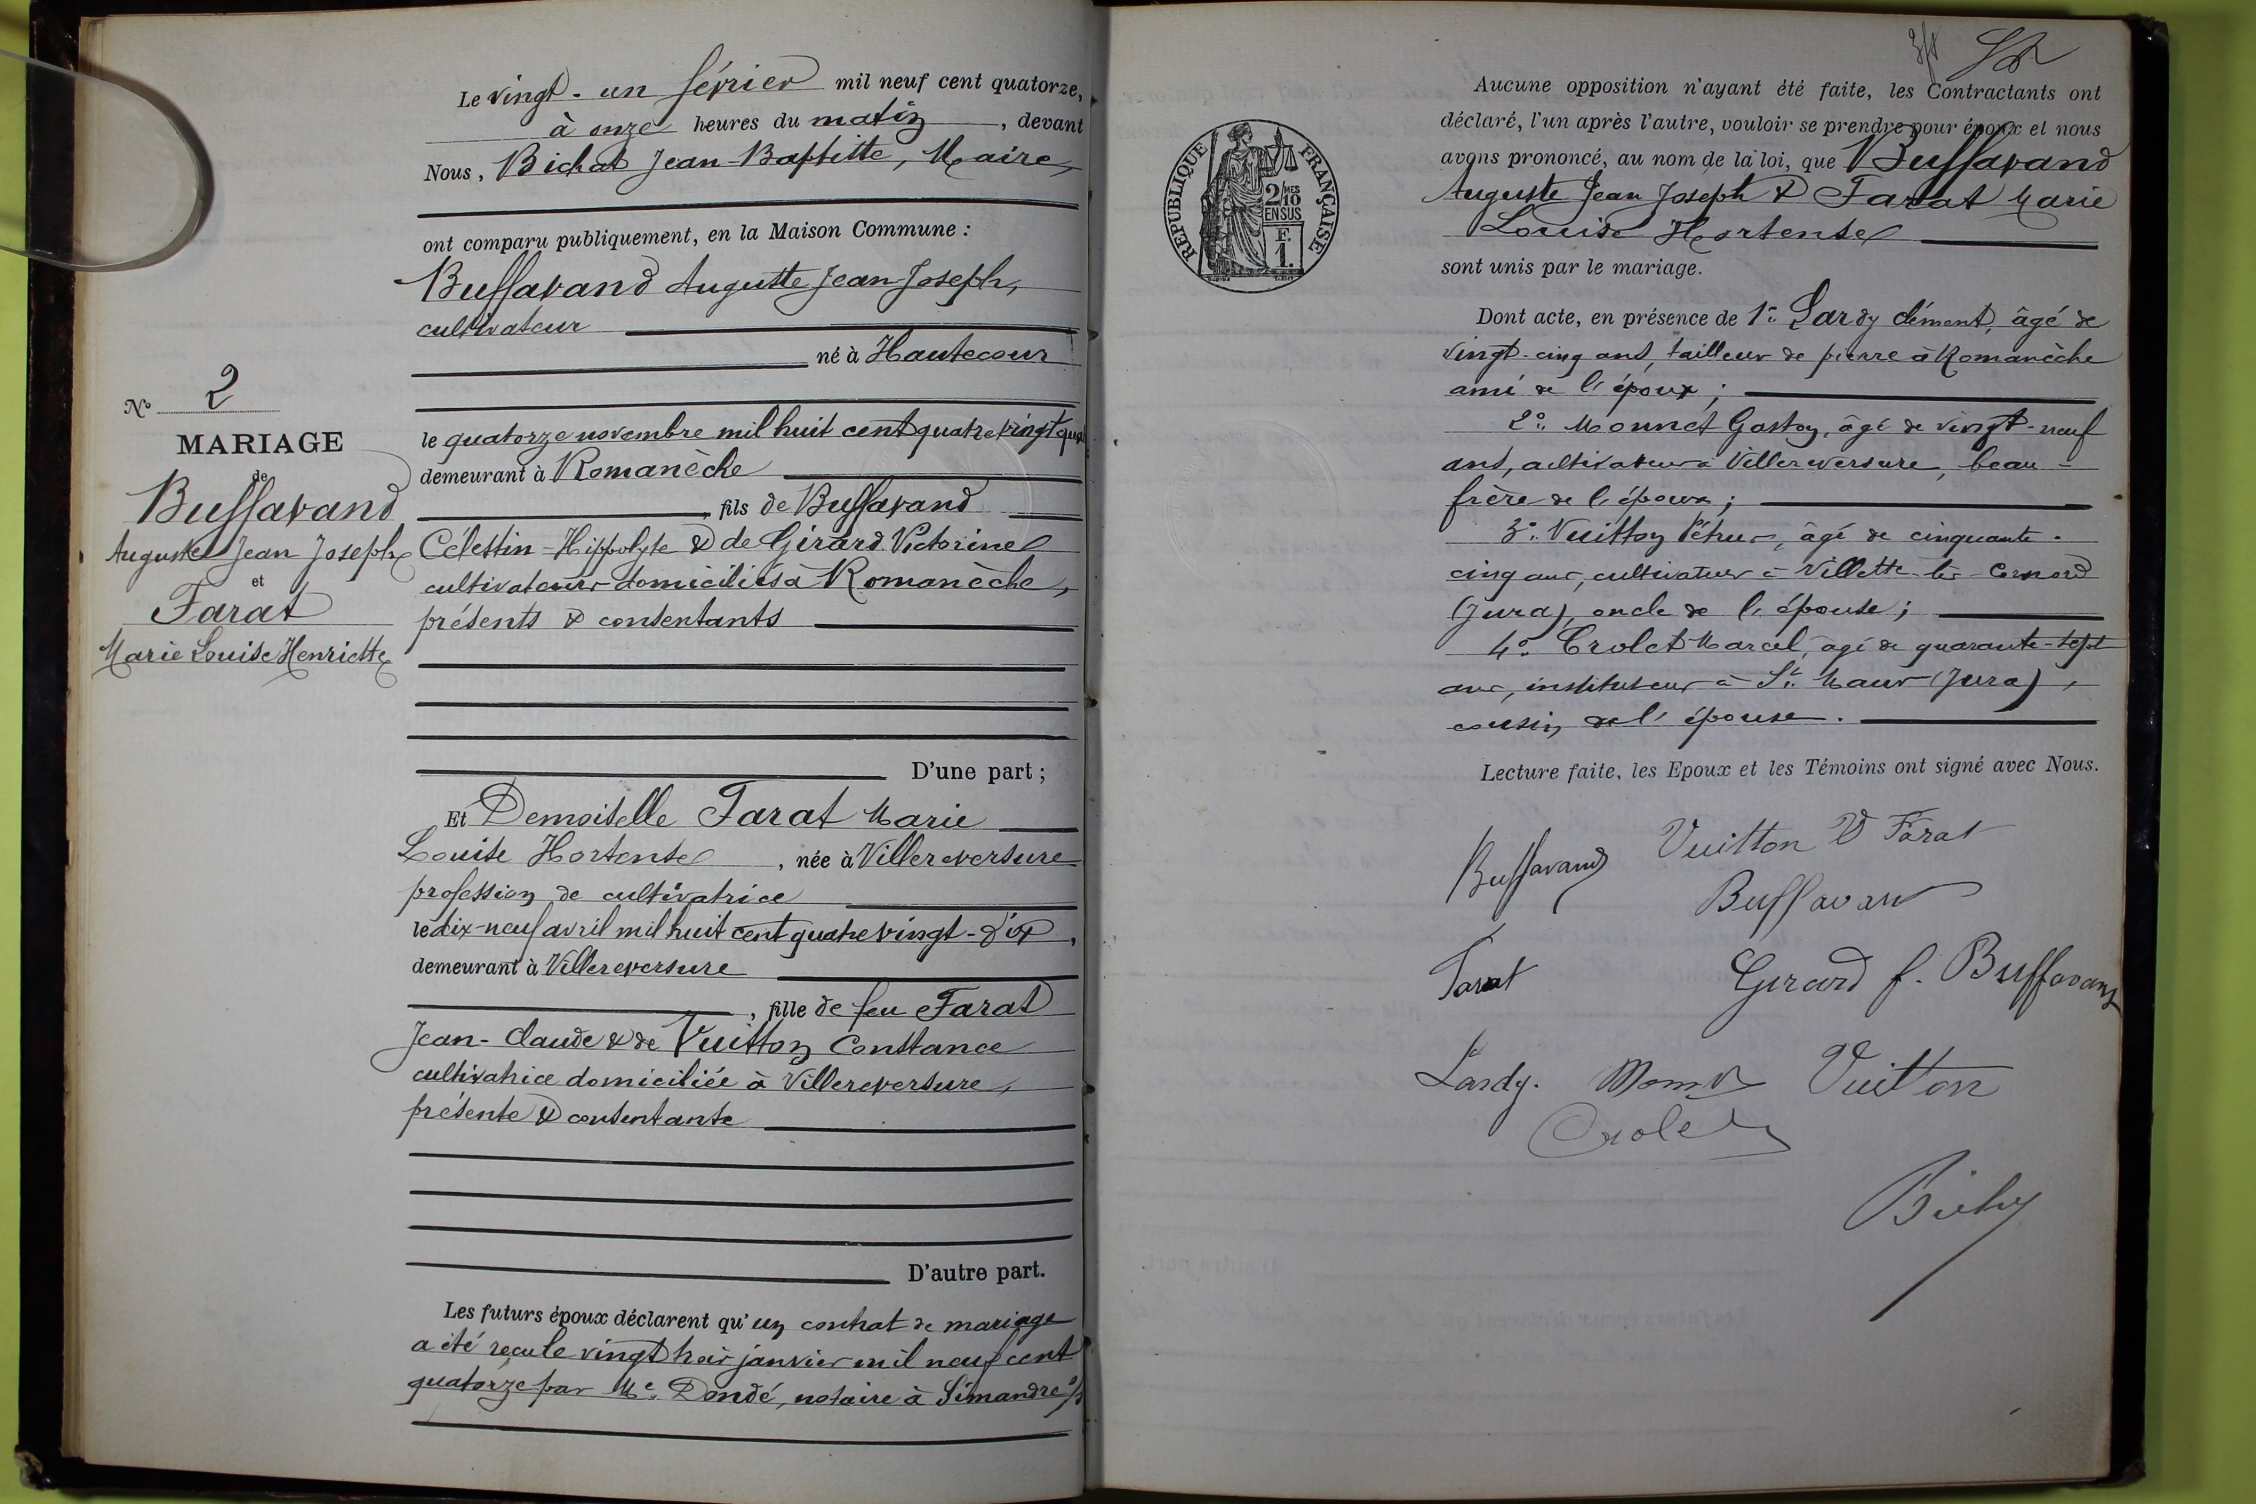 Le vingt-un février mil neuf cent quatorze,
à onze heures du matin, devant
Nous, Bichat Jean-Baptiste, Maire,
ont comparu publiquement, en la Maison Commune :
Buffavand Auguste Jean Joseph,
cultivateur
né à Hautecour
le quatorze novembre mil huit cent quatre vingt
demeurant à Romanèche
, fils de Buffavand
Célestin-Hippolyte & de Girard Victorine
cultivateurs domiciliés à Romanèche,
présents & consentants
D'une part ;
Et Demoiselle Farat Marie
Louise Hortense, née à Villereversure
profession de cultivatrice
le dix-neuf avril mil huit cent quatre vingt-dix,
demeurant à Villereversure
, fille de feu Farat
Jean-Claude & de Vuitton Constance
cultivatrice domiciliée à Villereversure,
présente & consentante
D'autre part.
Les futurs époux déclarent qu'un contrat de mariage
a été reçu le vingt trois janvier mil neuf cent
quatorze par Me Dondé, notaire à Simandre s/s
No 2
MARIAGE
de
Buffavand
Auguste Jean Joseph
et
Farat
Marie Louise Henriette
Aucune opposition n'ayant été faite, les Contractants ont
déclaré, l'un après l'autre, vouloir se prendre pour époux et nous
avons prononcé, au nom de la loi, que Buffavand
Auguste Jean Joseph & Farat Marie
Louise Hortense
sont unis par le mariage.
Dont acte, en présence de 1° Lardy Clément, âgé de
vingt-cinq ans, tailleur de pierre à Romanèche
ami de l'époux ;
2° Monnet Gaston, âgé de vingt-neuf
ans, cultivateur à Villereversure, beau-
frère de l'époux ;
3° Vuitton Pétrus, âgé de cinquante-
cinq ans, cultivateur à Villette-lès-Cornod
(Jura), oncle de l'épouse ;
4° Crolet Marcel, âgé de quarante-sept
ans, instituteur à St Maur (Jura),
cousin de l'épouse.
Lecture faite, les Epoux et les Témoins ont signé avec Nous.
Buffavand Vuitton V Farat
Buffavan
Farat Girard f. Buffavand
Lardy. Monnet Vuitton
Crolet
Bichat
RÉPUBLIQUE FRANÇAISE
2/10 MES
EN SUS
F.
1.